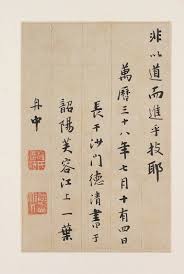 非以道而進乎技耶
萬曆三十八年七月十有四日
長干沙門德清書于
韶陽芙容江上一葉
舟中